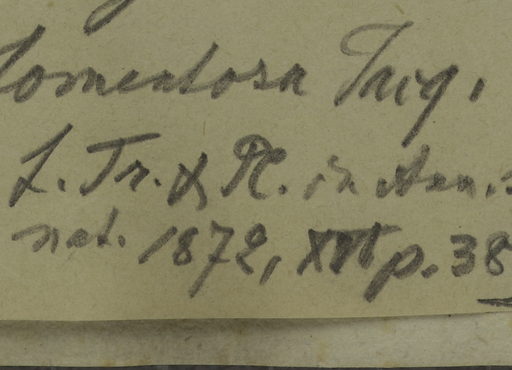 tomentosa Taig.
L. Tr. & Pl. in Ann. s
nat. 1872, XVI p. 38